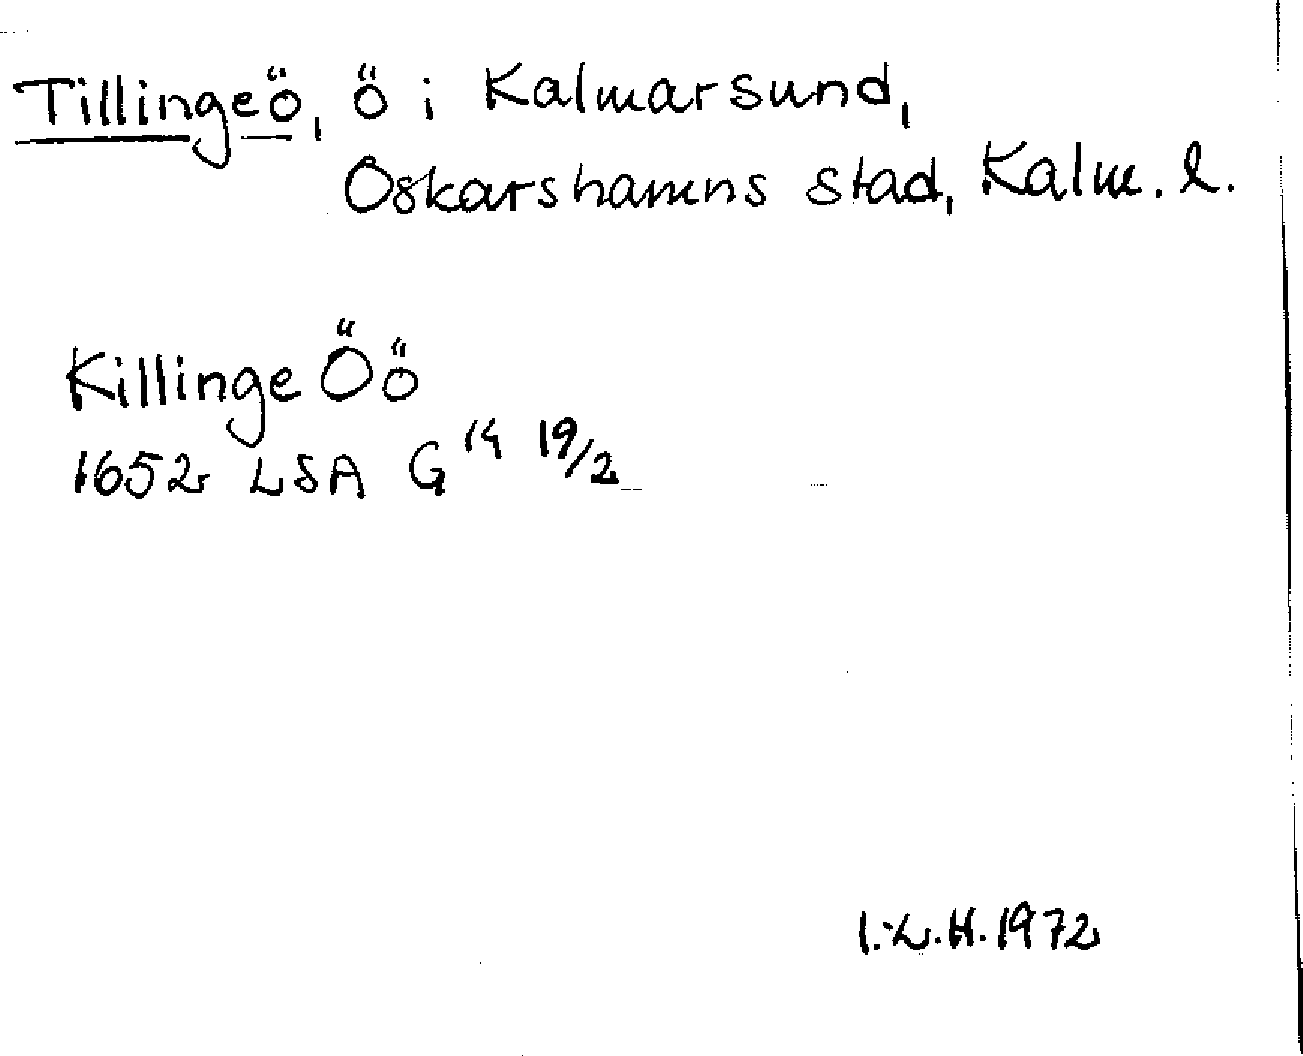 Tillingeö, ö i Kalmarsund,
Oskarshamns stad, Kalm. l.
Killinge Öö
1652 LSA G 14 19/2
I.L.H. 1972